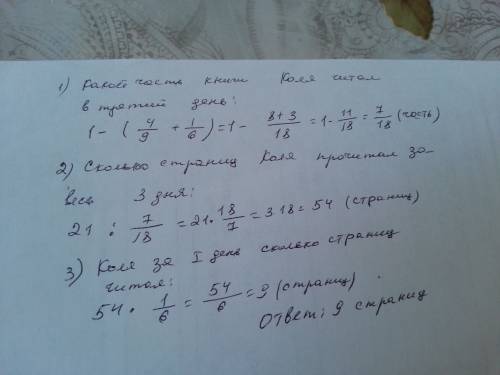 1) Какой часть книги Коля читал
в третий день:
1 - (4/9 + 1/6) = 1 - 8+3/18 = 1 - 11/18 = 7/18 (часть)
2) Сколько страниц Коля прочитал за
весь 3 дня:
21 : 7/18 = 21 · 18/7 = 3·18 = 54 (страниц)
3) Коля за I день сколько страниц
читал:
54 · 1/6 = 54/6 = 9 (страниц)
Ответ: 9 страниц